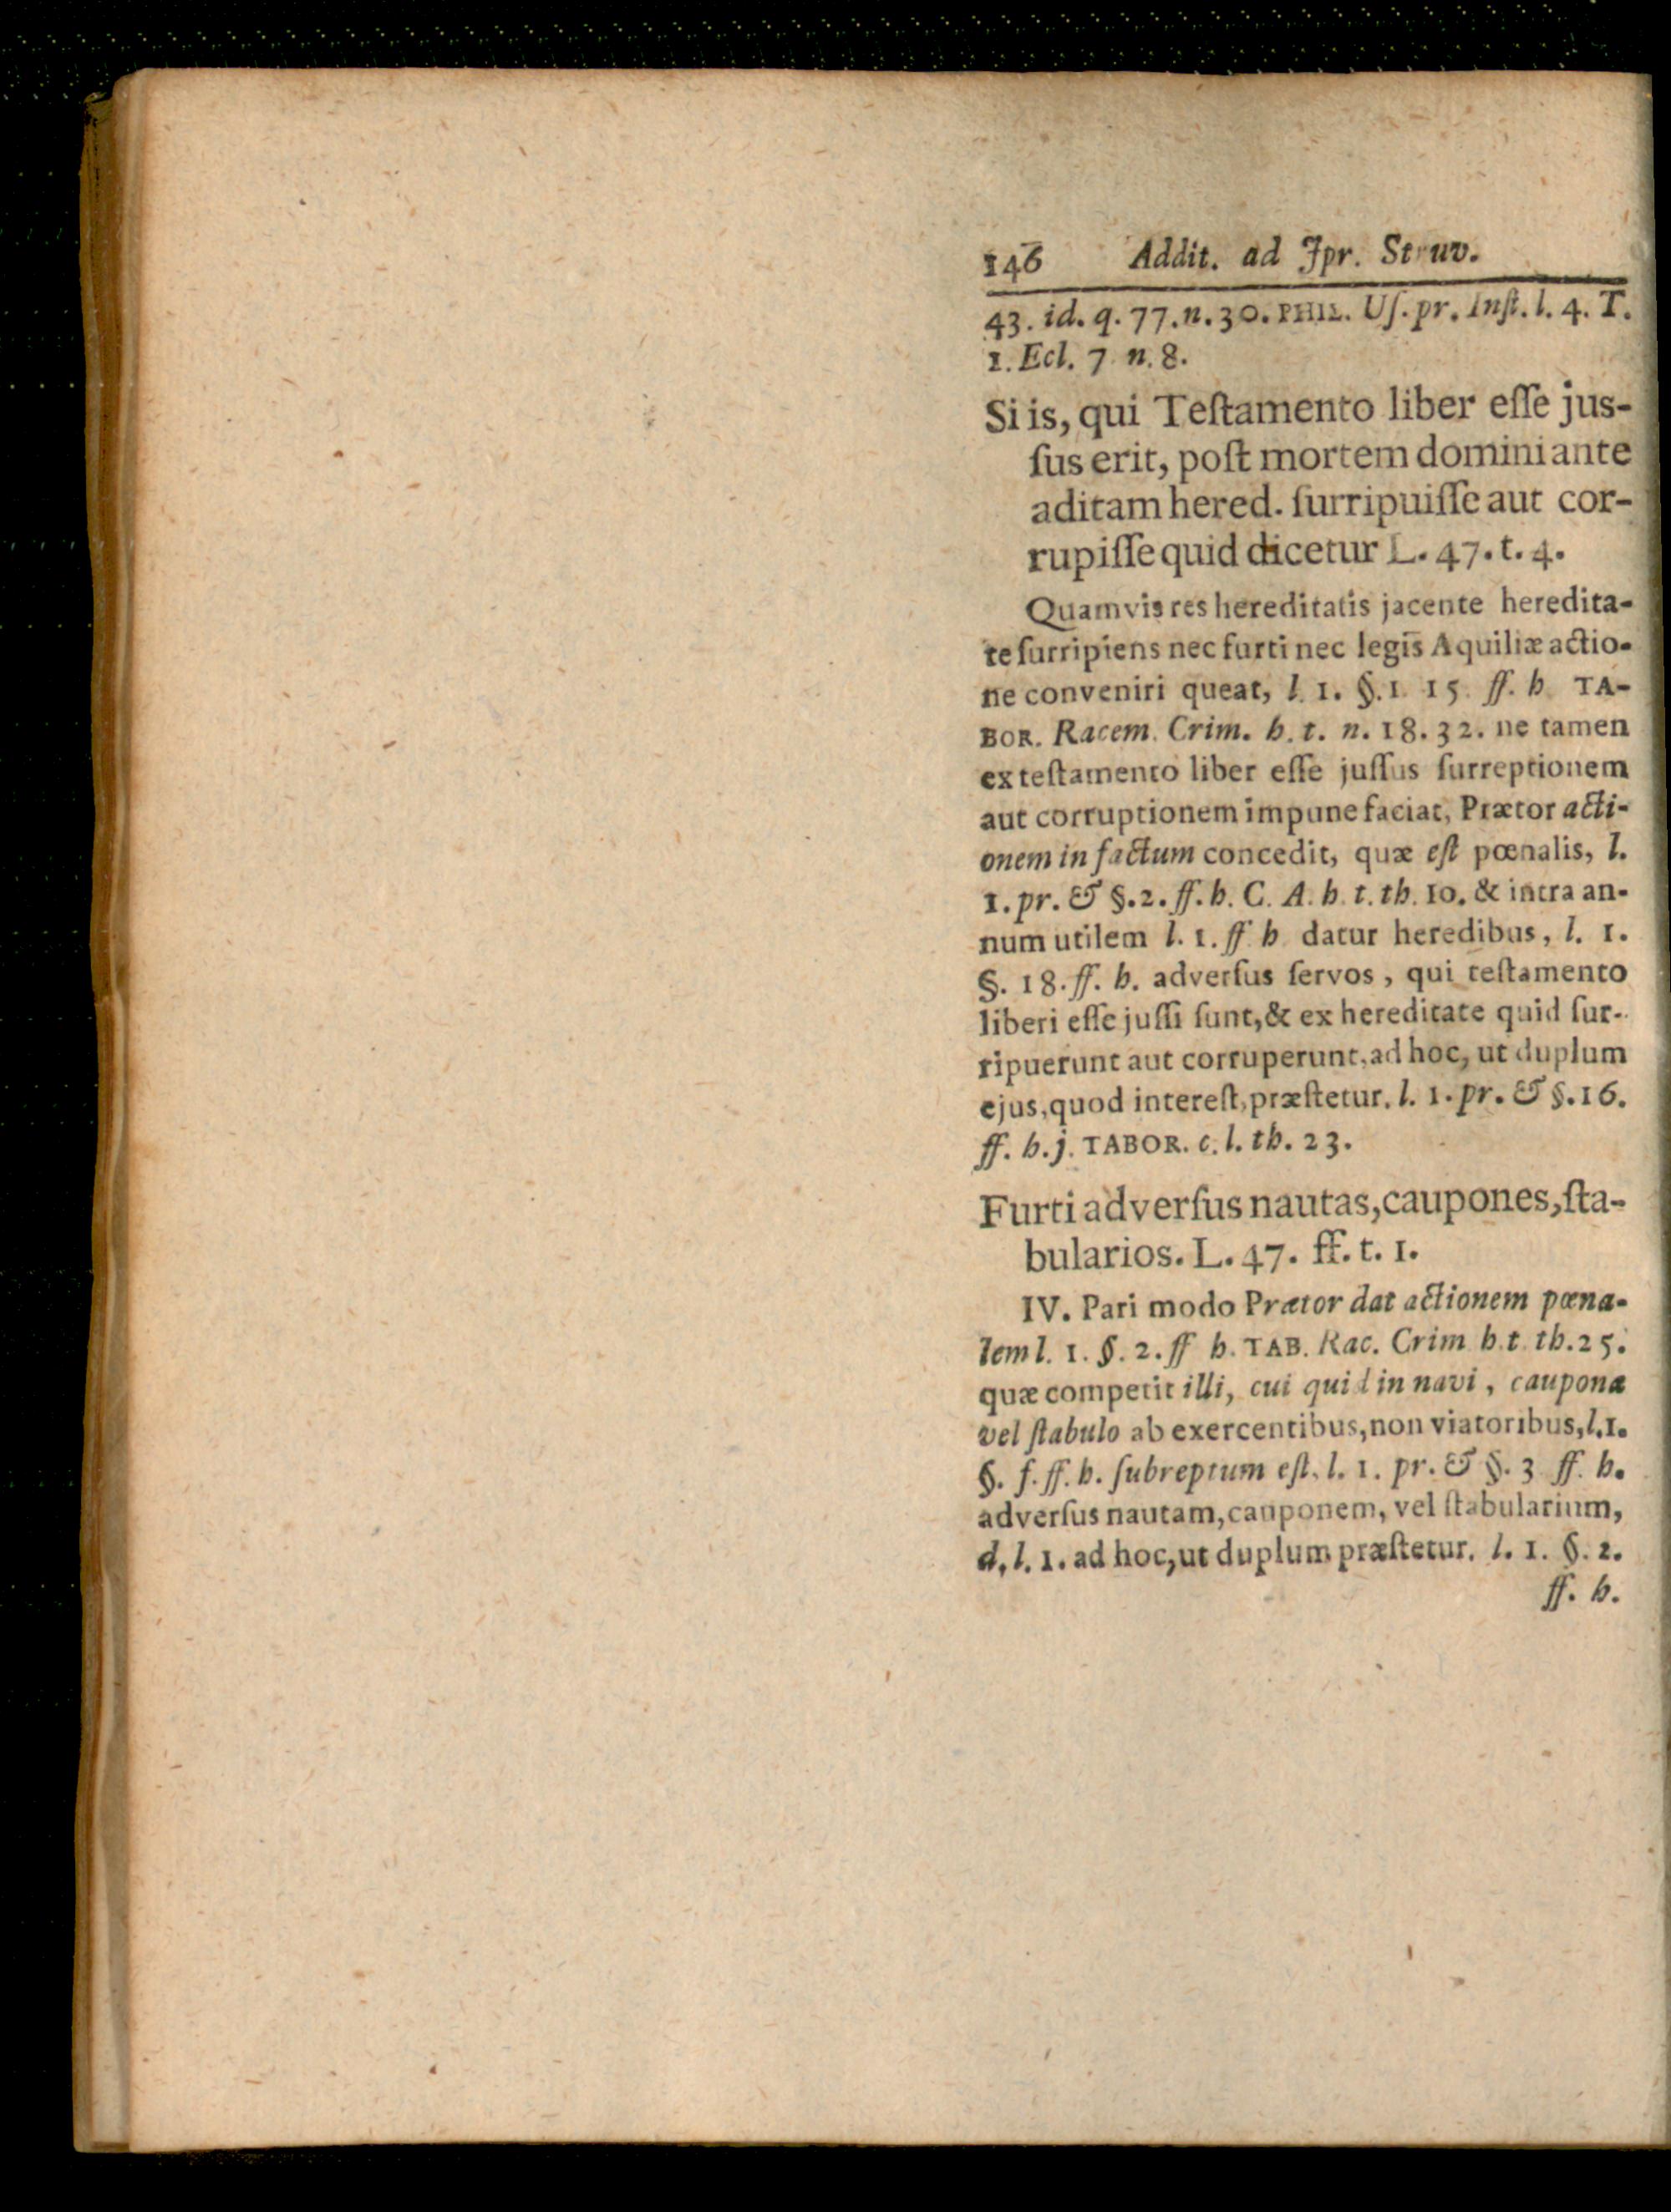 146 Addit. ad Jpr. Struv.
43. id. q. 77. n. 30. PHIL. Uſ. pr. Inſt. l. 4. T.
1. Ecl. 7 n. 8.
Si is, qui Teſtamento liber eſſe jus-
ſus erit, poſt mortem domini ante
aditam hered. ſurripuiſſe aut cor-
rupiſſe quid dicetur L. 47. t. 4.
Quamvis res hereditatis jacente heredita-
te ſurripiens nec furti nec legis Aquiliæ actio-
ne conveniri queat, l. 1. §. 1. 15 ff. h TA-
BOR. Racem. Crim. h. t. n. 18. 32. ne tamen
ex teſtamento liber eſſe juſſus ſurreptionem
aut corruptionem impune faciat, Prætor acti-
onem in factum concedit, quæ eſt pœnalis, l.
1. pr. & §. 2. ff. h. C. A. h. t. th. 10. & intra an-
num utilem l. 1. ff h datur heredibus, l. 1.
§. 18. ff. h. adverſus ſervos, qui teſtamento
liberi eſſe juſſi ſunt, & ex hereditate quid ſur-
ripuerunt aut corruperunt, ad hoc, ut duplum
ejus, quod intereſt, præſtetur. l. 1. pr. & §. 16.
ff. h. j. TABOR. c. l. th. 23.
Furti adverſus nautas, caupones, ſta-
bularios. L. 47. ff. t. 1.
IV. Pari modo Prætor dat actionem pœna-
lem l. 1. §. 2. ff h. TAB. Rac. Crim h. t th. 25.
quæ competit illi, cui quid in navi, caupona
vel ſtabulo ab exercentibus, non viatoribus, l. 1.
§. f. ff. h. ſubreptum eſt, l. 1. pr. & §. 3 ff. h.
adverſus nautam, cauponem, vel ſtabularium,
d. l. 1. ad hoc, ut duplum præſtetur. l. 1. §. 2.
ff. h.